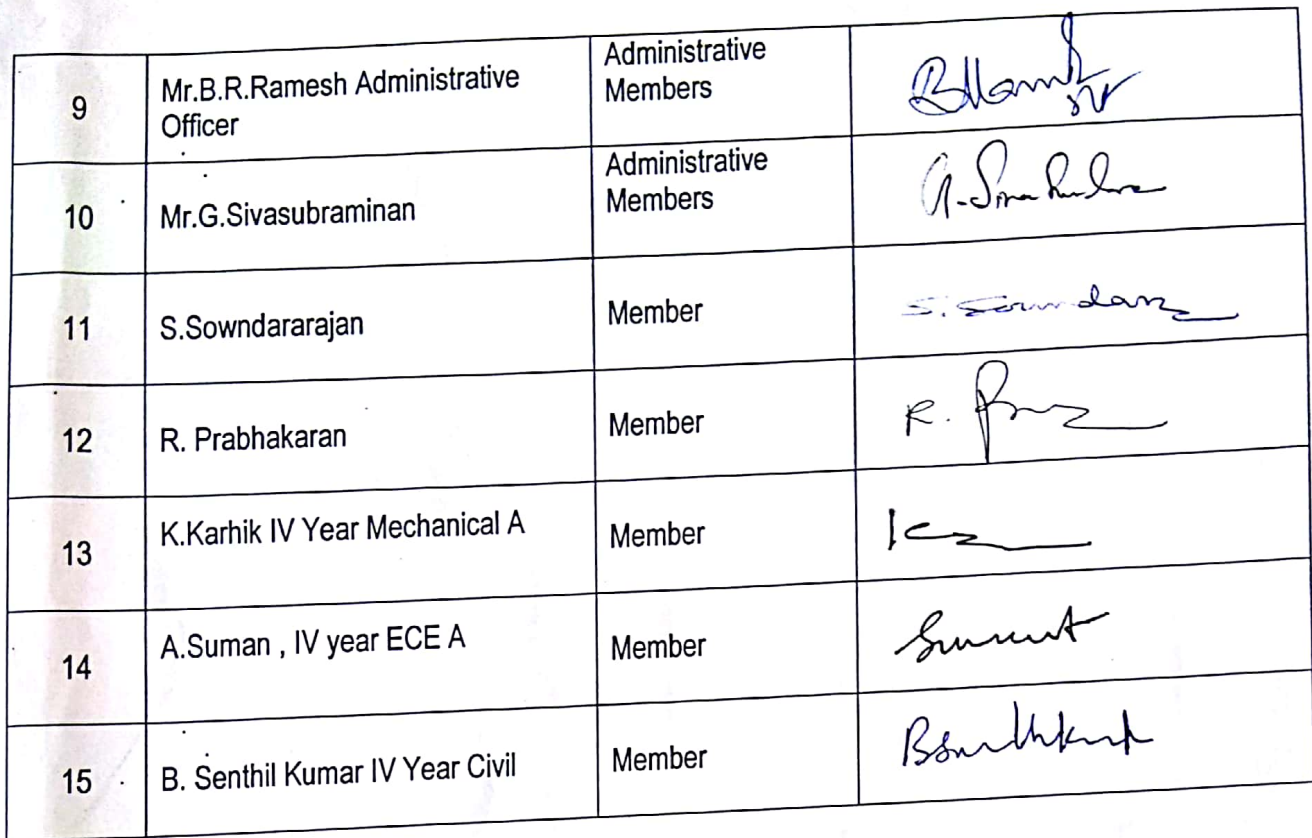 9
Mr.B.R.Ramesh Administrative
Officer
Administrative
Members
10
Mr.G.Sivasubraminan
Administrative
Members
11
S.Sowndararajan
Member
S.
12
R. Prabhakaran
Member
R.
13
K.Karhik IV Year Mechanical A
Member
14
A.Suman , IV year ECE A
Member
15
B. Senthil Kumar IV Year Civil
Member